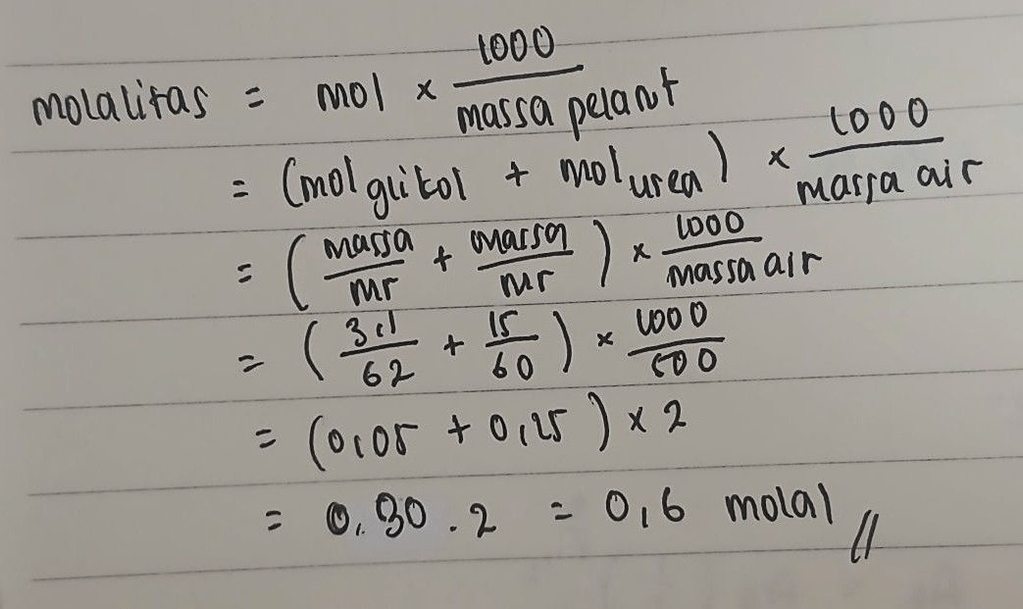 molalitas = mol × 1000 / massa pelarut
= (mol glikol + mol urea) × 1000 / massa air
= (massa / mr + massa / mr) × 1000 / massa air
= (3,1 / 62 + 15 / 60) × 1000 / 500
= (0,05 + 0,25) × 2
= 0,30 . 2 = 0,6 molal //